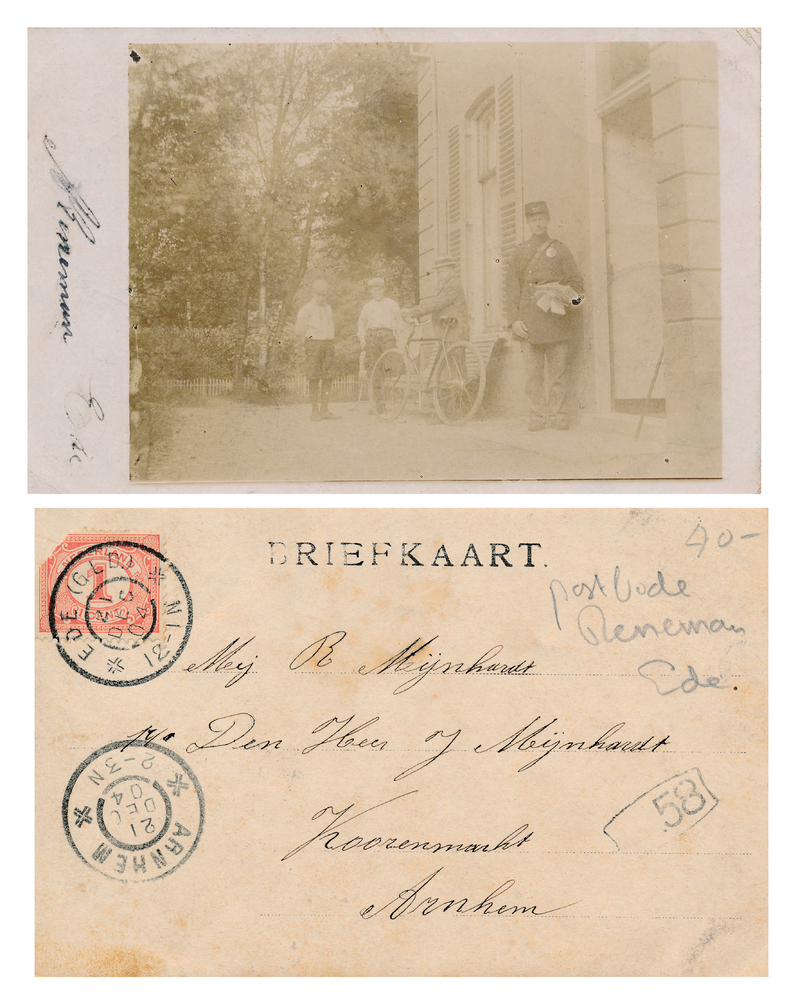 Reneman Ede
BRIEFKAART.
40-
postbode
Reneman
Ede
1
EDE (GLD)
12-1N
21
DEC
04
Mej R Mijnhardt
p/a Den Heer J Mijnhardt
Koorenmarkt
Arnhem
ARNHEM
2-3N
21
DEC
04
58